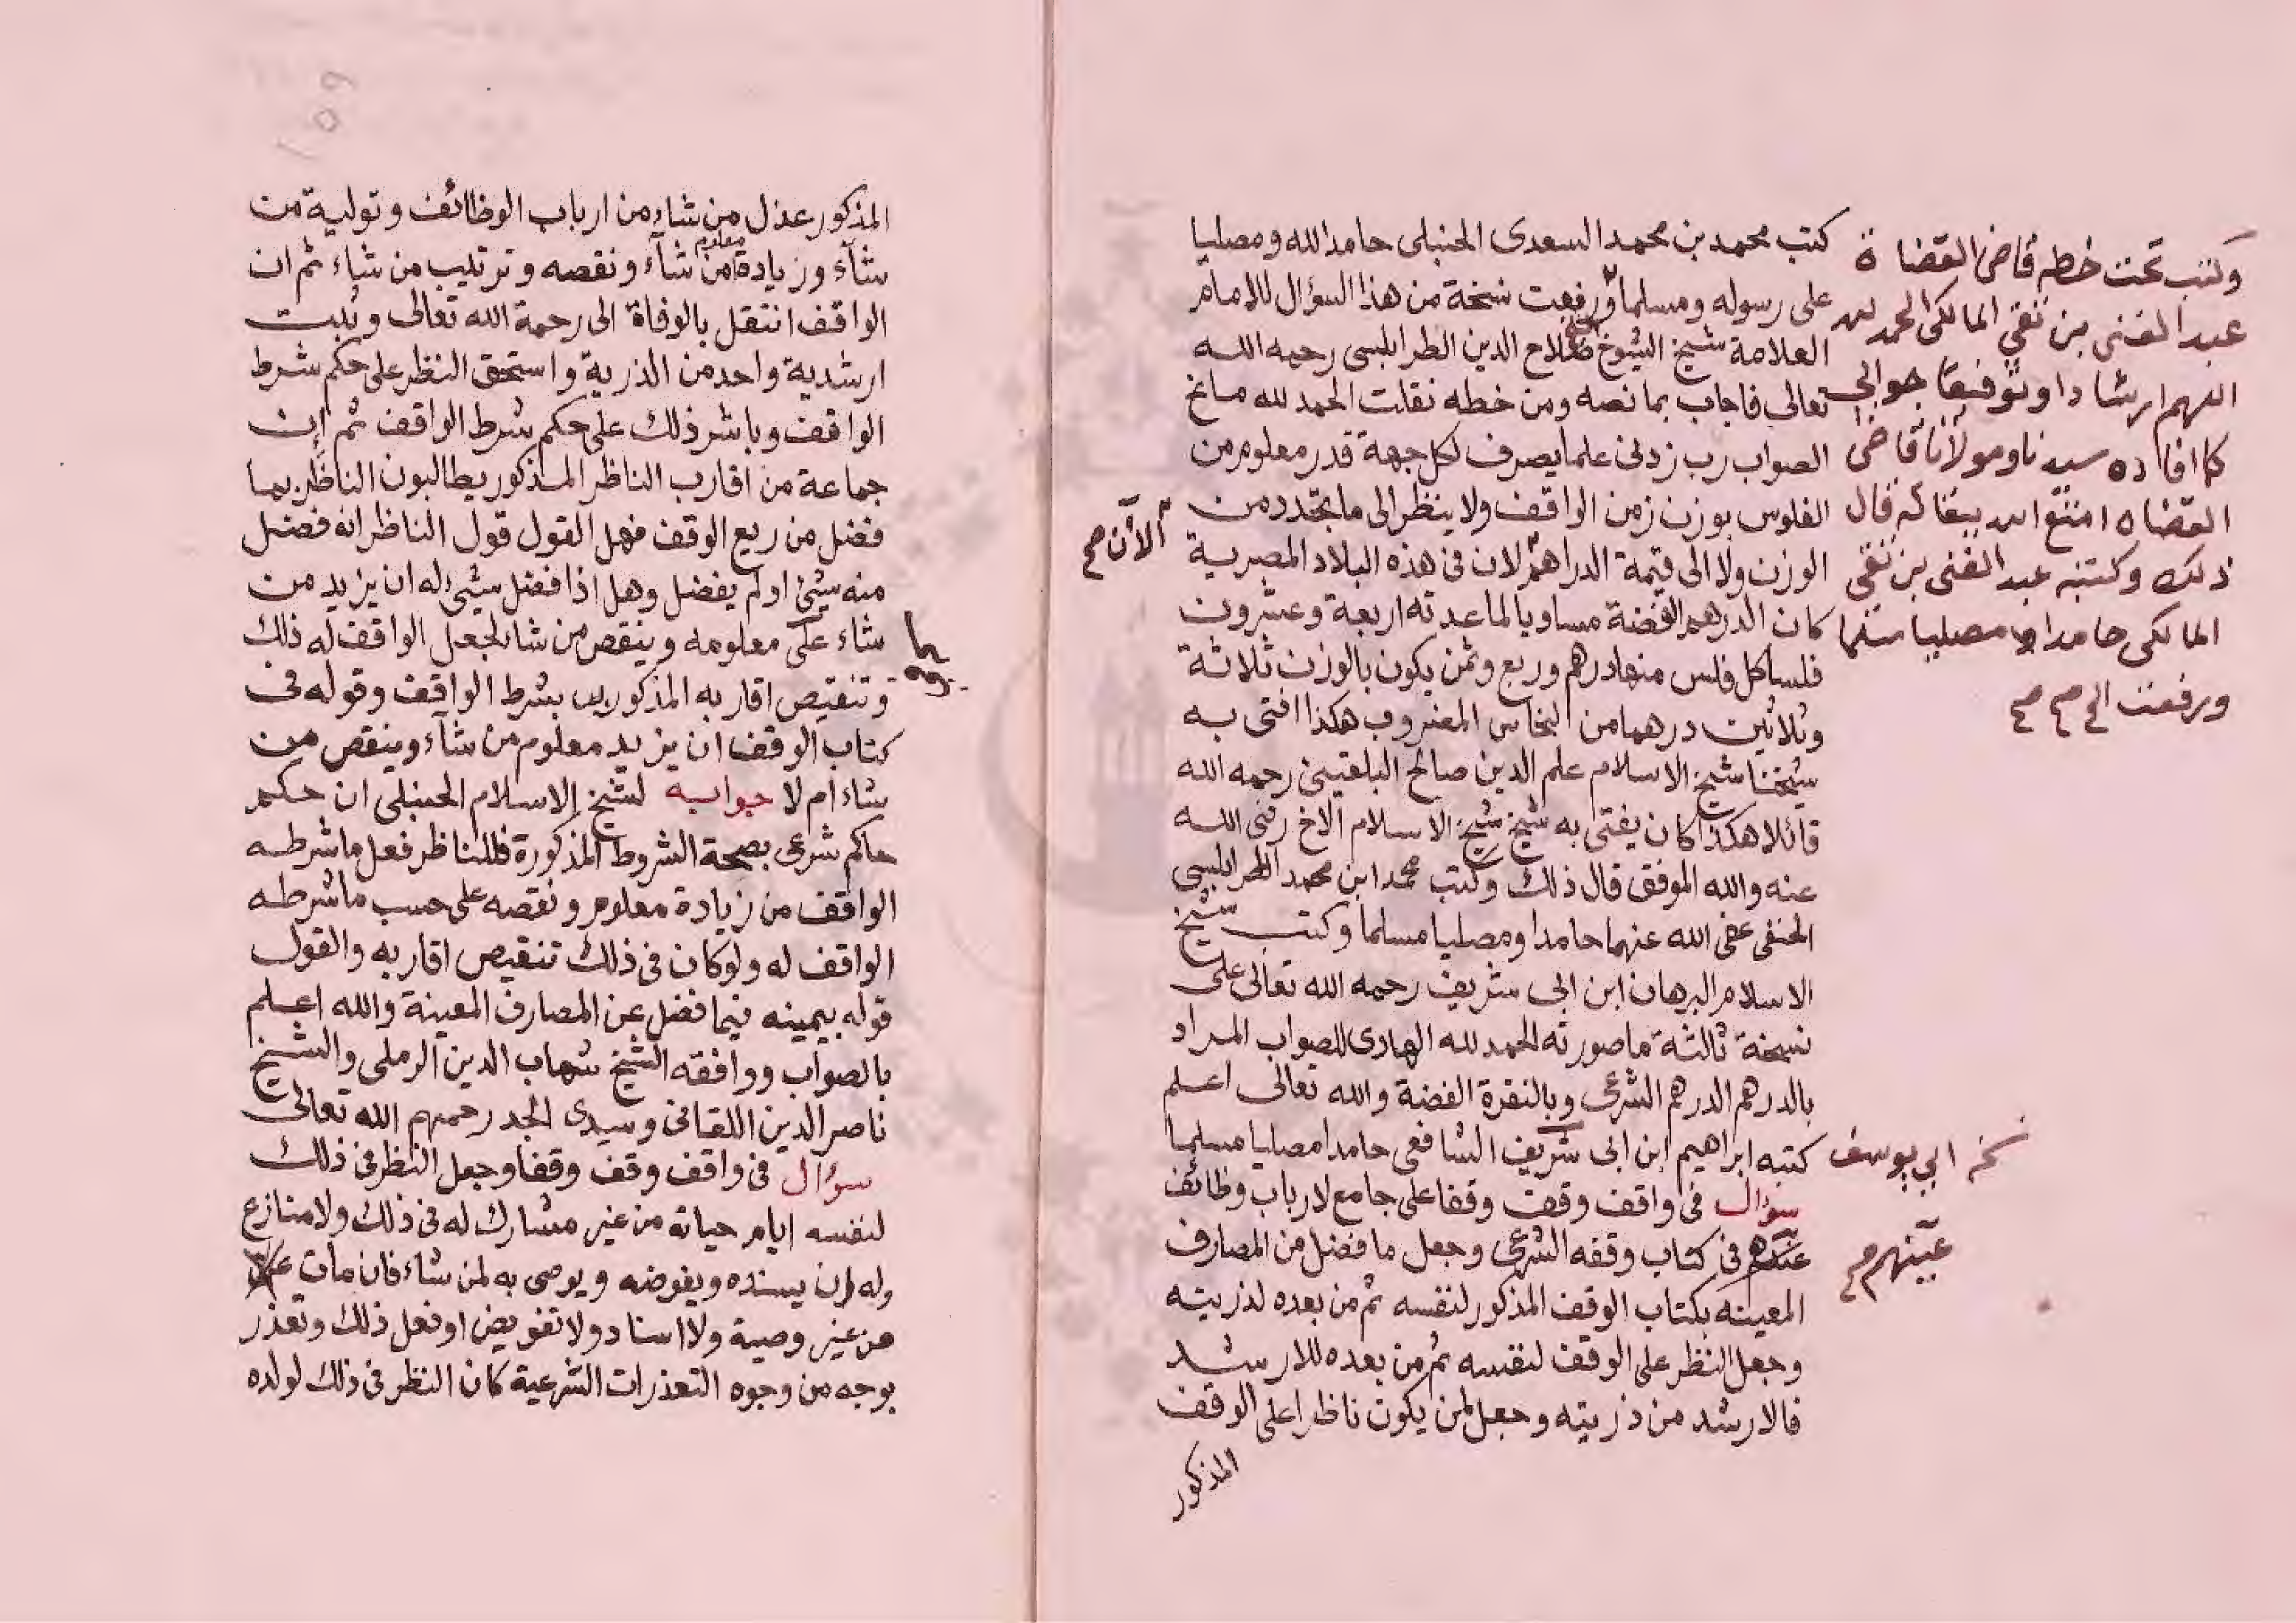 كتب محمد بن محمد السعدى الحنبلى حامدا لله ومصليا
على رسوله ومسلما ورفعت نسخة من هذا السؤال للامام
العلامة شيخ الشيوخ صلاح الدين الطرابلسى رحمه الله
تعالى فاجاب بما نصه ومن خطه نقلت الحمد لله مانح
الصواب رب زدنى علما يصرف لكل جهة قدر معلوم من
الفلوس بوزن زمن الواقف ولا ينظر الى ما يتجدد من
الوزن ولا الى قيمة الدراهم لان فى هذه البلاد المصرية
كان الدرهم الفضة مساويا لما عدته اربعة وعشرون
فلسا كل فلس منها درهم وربع وثمن يكون بالوزن ثلاثة
وثلاثين درهما من النحاس المضروب هكذا افتى به
شيخنا شيخ الاسلام علم الدين صالح البلقينى رحمه الله
قائلا هكذا كان يفتى به شيخ شيخ الاسلام الاخ رضى الله
عنه والله الموفق قال ذلك وكتب محمد ابن محمد الطرابلسى
الحنفى عفى الله عنهما حامدا ومصليا مسلما وكتب شيخ
الاسلام البرهان ابن ابى شريف رحمه الله تعالى على
نسخة ثالثة ما صورته الحمد لله الهادى للصواب المراد
بالدرهم الدرهم الشرعى وبالنقرة الفضة والله تعالى اعلم
كتبه ابراهيم ابن ابى شريف الشافعى حامدا مصليا مسلما
سؤال فى واقف وقف وقفا على جامع لارباب وظائف
فى كتاب وقفه الشرعى وجعل ما فضل من المصارف
المعينه بكتاب الوقف المذكور لنفسه ثم من بعده لذريته
وجعل النظر على الوقف لنفسه ثم من بعده للارشد
فالارشد من ذريته وجعل لمن يكون ناظرا على الوقف
المذكور
وكتب تحت خطه قاضى القضاة
عبد الغنى بن تقي المالكى الحمد لله
اللهم ارشادا وتوفيقا جوابى
كما افاده سيدنا ومولانا قاضى
القضاه امتع الله ببقائه قال
ذلك وكتبه عبد الغنى بن تقي
المالكى حامدا مصليا مسلما
ورفعت الى صح صح
الآن صح
ابى يوسف
عينهم صح
المذكور عزل من شاء من ارباب الوظائف وتولية من
شآء وزيادة معلوم من شآء ونقصه وترتيب من شاء ثم ان
الواقف انتقل بالوفاة الى رحمة الله تعالى وثبت
ارشدية واحد من الذرية واستحق النظر على حكم شرط
الواقف وباشر ذلك على حكم شرط الواقف ثم ان
جماعة من اقارب الناظر المذكور يطالبون الناظر بما
فضل من ريع الوقف فهل القول قول الناظر انه فضل
منه شيئ او لم يفضل وهل اذا فضل شيئ له ان يزيد من
شاء على معلومه وينقص من شا لجعل الواقف له ذلك
وتنقيص اقاربه المذكورين بشرط الواقف وقوله فى
كتاب الوقف ان يزيد معلوم من شآء وينقص من
شاء ام لا جوابه لشيخ الاسلام الحنبلى ان حكم
حاكم شرعى بصحة الشروط المذكورة فللناظر فعل ما شرطه
الواقف من زيادة معلوم ونقصه على حسب ما شرطه
الواقف له ولو كان فى ذلك تنقيص اقاربه والقول
قوله بيمينه فيما فضل عن المصارف المعينة والله اعلم
بالصواب ووافقه الشيخ شهاب الدين الرملى والشيخ
ناصر الدين اللقانى وسيدى الجد رحمهم الله تعالى
سؤال فى واقف وقف وقفا وجعل النظر فى ذلك
لنفسه ايام حياته من غير مشارك له فى ذلك ولا منازع
وله ان يسنده ويفوضه ويوصى به لمن شاء فان مات
من غير وصية ولا اسناد ولا تفويض او فعل ذلك وتعذر
بوجه من وجوه التعذرات الشرعية كان النظر فى ذلك لولده